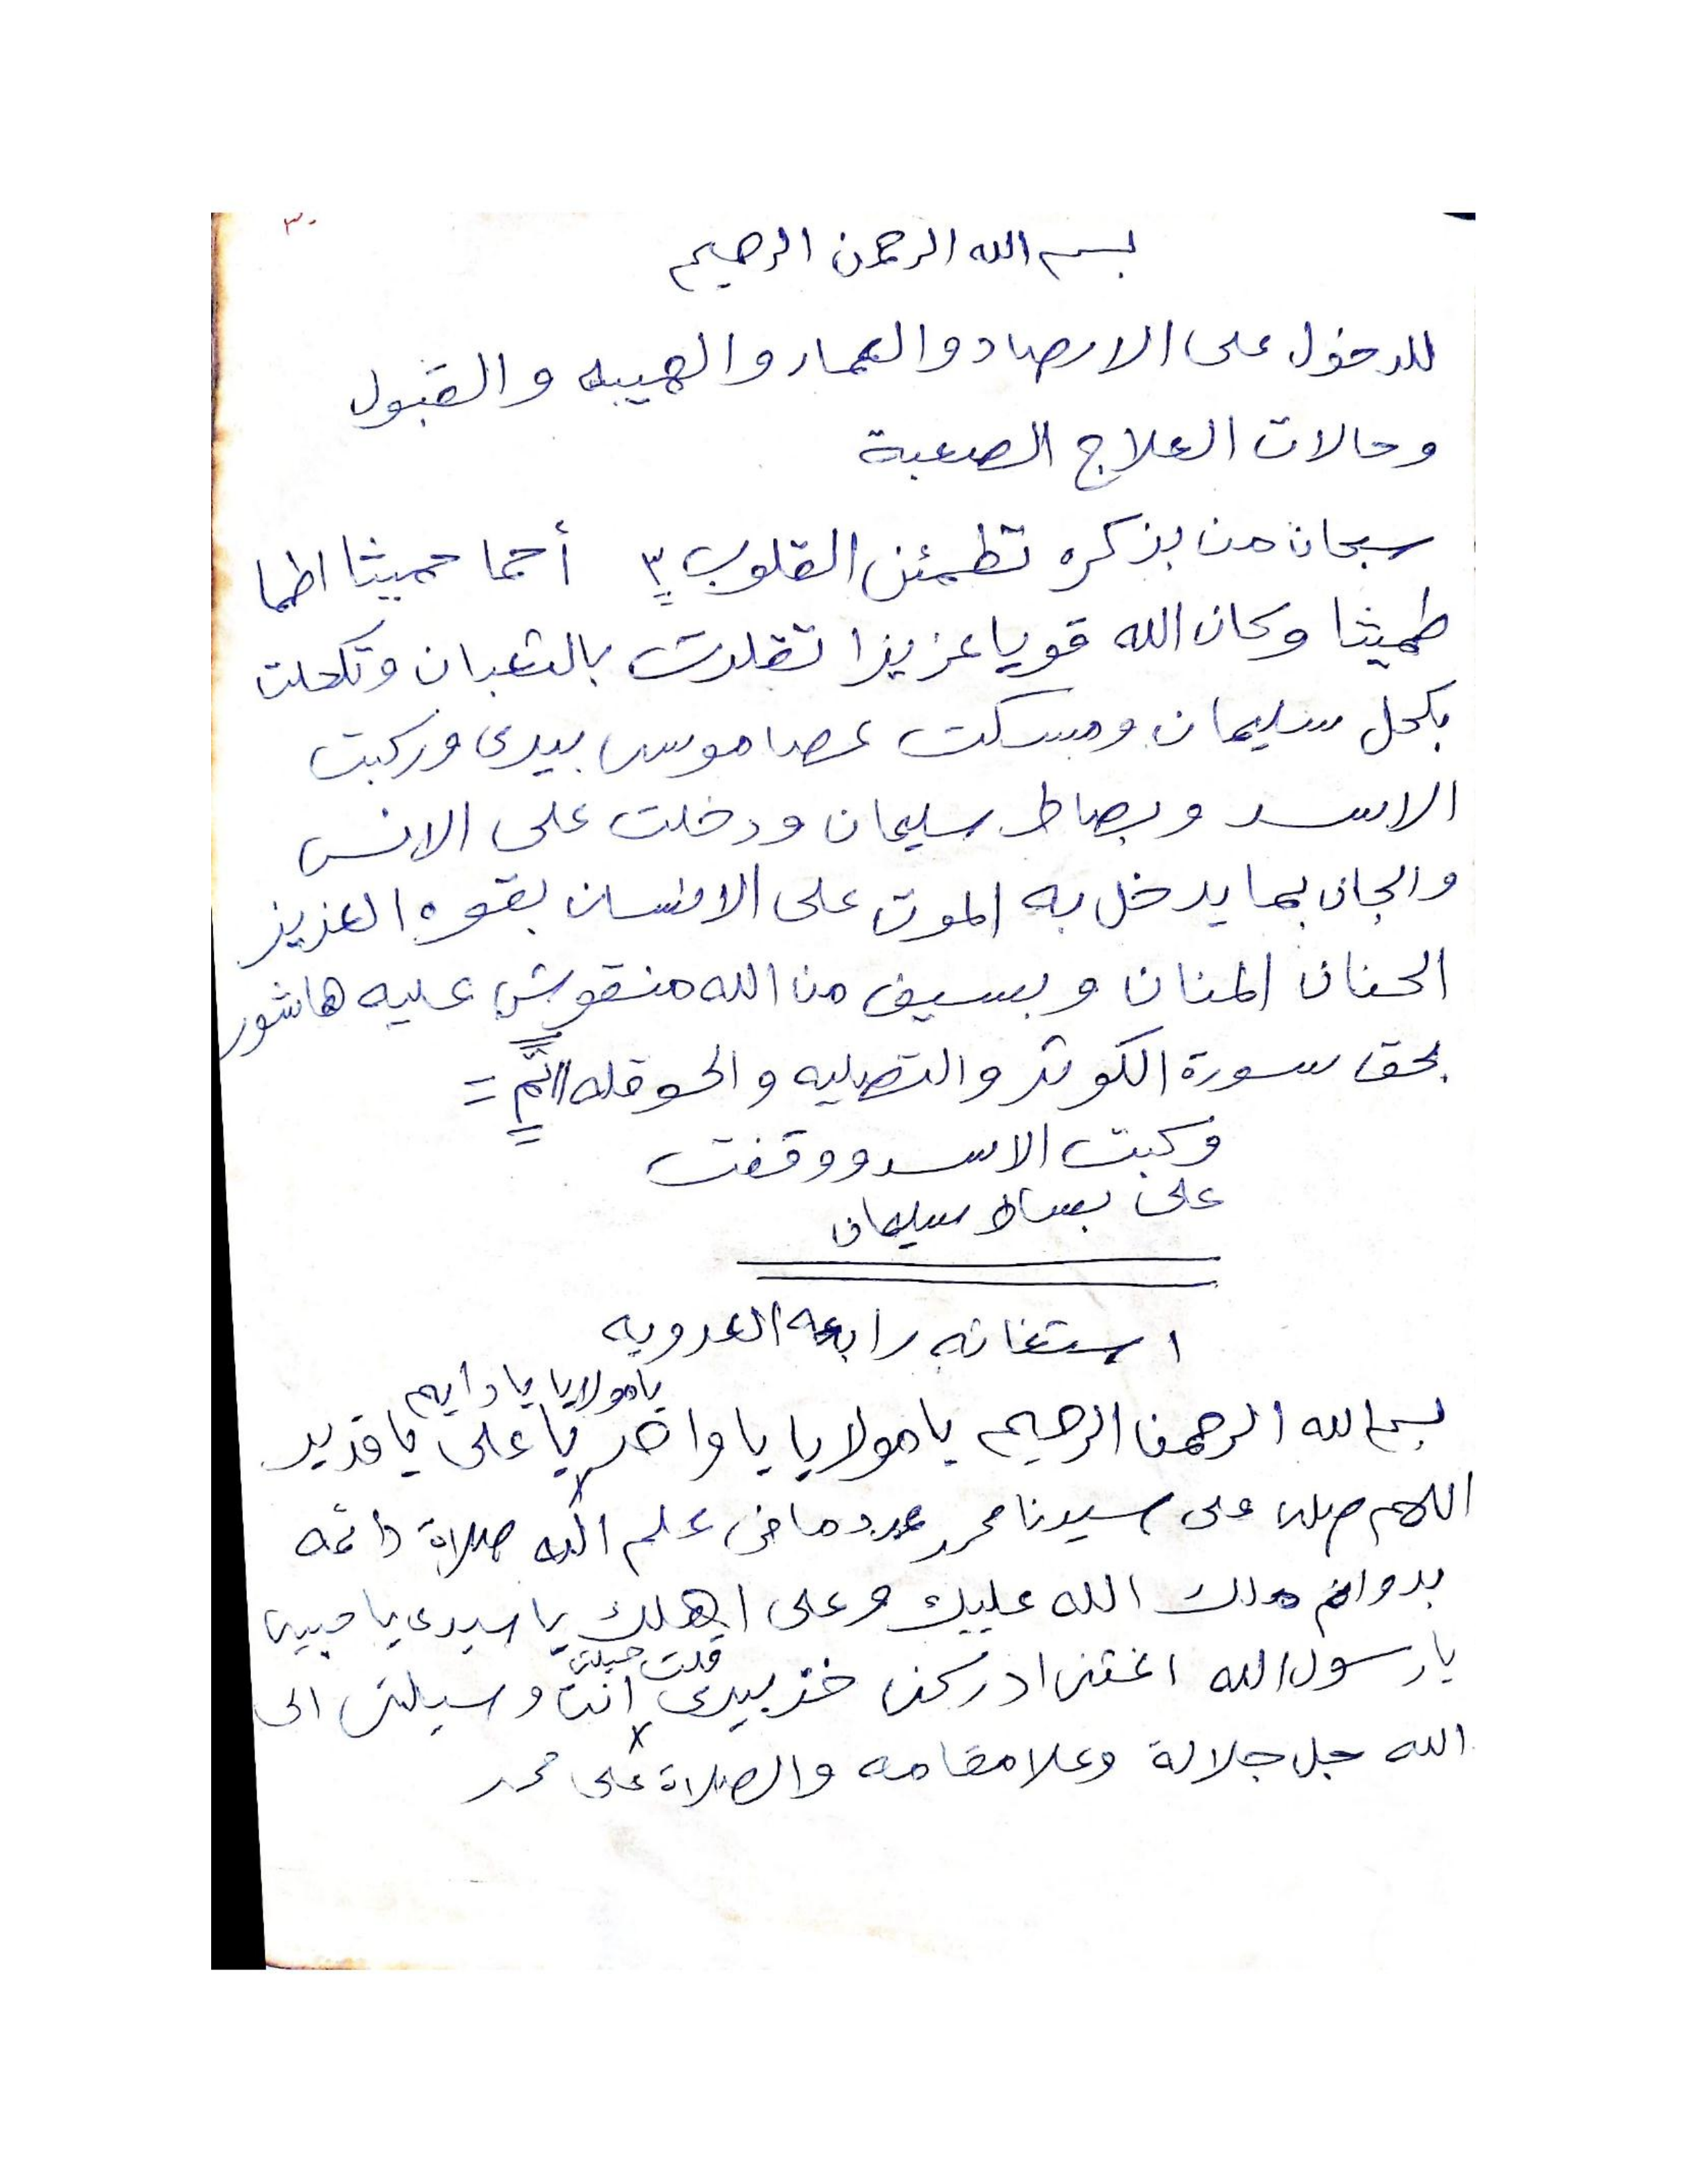 ٣٠
بسم الله الرحمن الرحيم
للدخول على الارصاد والعمار والهيبه والقبول
وحالات العلاج الصعبة
سبحان من بذكره تطمئن القلوب ٣ أحما حميثا اطما
طميثا وكان الله قويا عزيزا تقلدت بالثعبان وتكحلت
بكحل سليمان ومسكت عصا موسى بيدى وركبت
الاسد وبصاط سليمان ودخلت على الانس
والجان بما يدخل به الموت على الانسان بقوه العزيز
الحنان المنان وبسيف من الله منقوش عليه هاشور
بحق سورة الكوثر والتصليه والحوقله
وركبت الاسد ووقفت
على بساط سليمان
استغاثه رابعه العدويه
يا مولايا يا دايم
بسم الله الرحمن الرحيم يا مولايا يا واحد يا على يا قدير
اللهم صلى على سيدنا محمد عدد ما فى علم الله صلاة دائمه
بدوام ملك الله عليك وعلى اهلك يا سيدى يا حبيبى
قلت حيلتى
يا رسول الله اغثنى ادركنى خذ بيدى انت وسيلتى الى
الله جل جلالة وعلا مقامه والصلاة على محمد